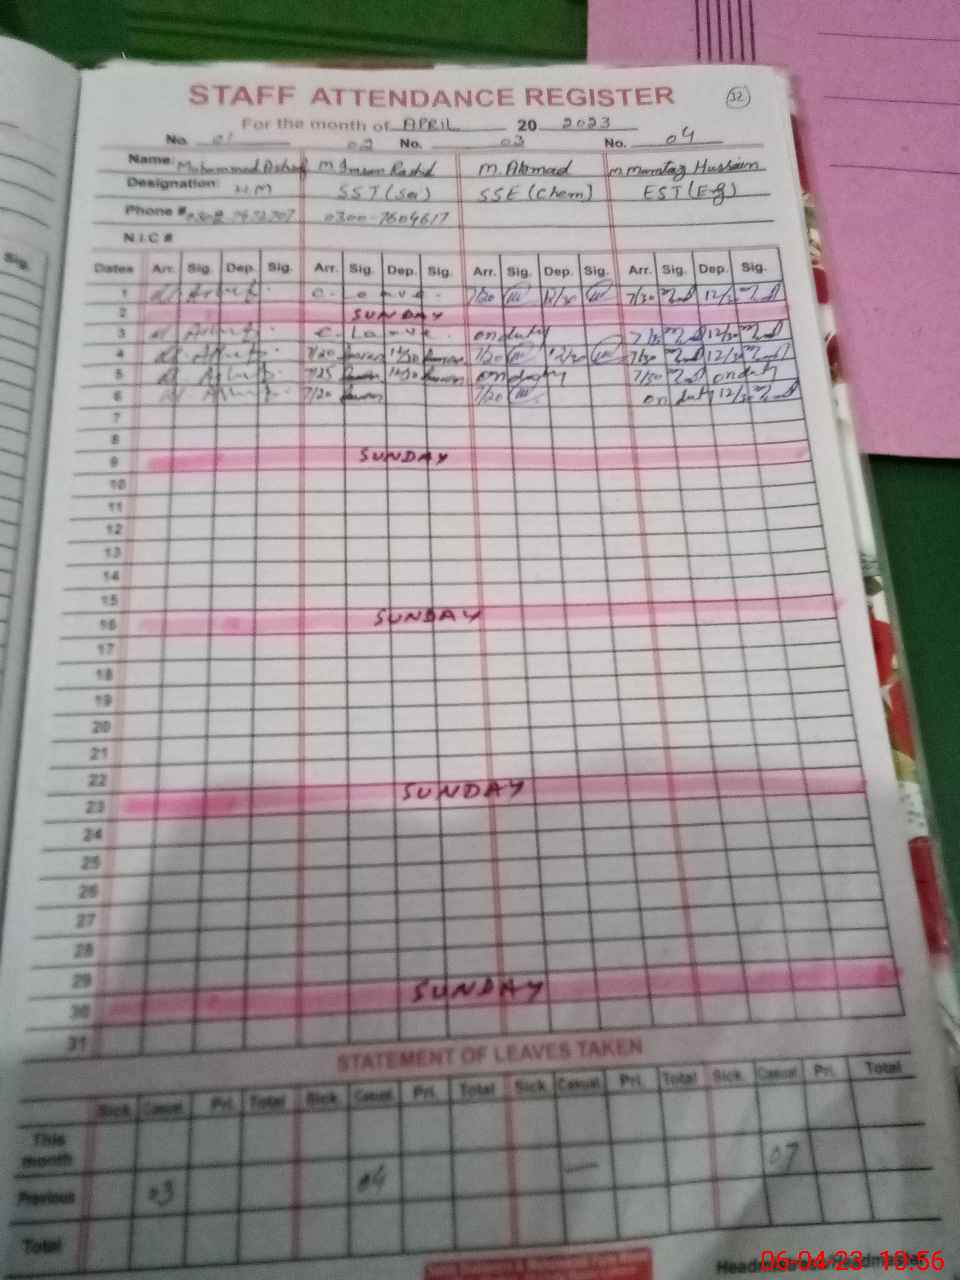 STAFF ATTENDANCE REGISTER 32
For the month of APRIL 20 2023
No. 01 02 No. 03 No. 04
Name: Muhammad M Imran Rashid M. Ahmad M. Mumtaz Hussain
Designation: SST (Sci) SSE (Chem) EST (Eng)
Phone # 0300-7604617
N.I.C #
Sig.
Dates Arr. Sig. Dep. Sig. Arr. Sig. Dep. Sig. Arr. Sig. Dep. Sig. Arr. Sig. Dep. Sig.
1 C. Leave. 7/20 12/30 7/30 12/30
2 SUNDAY
3 C. Leave. on duty 7/30 12/30
4 7/20 12/30 7/20 12/30 7/30 12/30
5 7/25 12/30 on duty 7/30 on duty
6 7/20 7/20 on duty 12/30
7
8
9 SUNDAY
10
11
12
13
14
15
16 SUNDAY
17
18
19
20
21
22
23 SUNDAY
24
25
26
27
28
29
30 SUNDAY
31
STATEMENT OF LEAVES TAKEN
Sick Casual Pri. Total Sick Casual Pri. Total Sick Casual Pri. Total Sick Casual Pri. Total
This month
Previous 03 04 — 07
Total
Headmistress/Headmaster
06-04-23 10:56